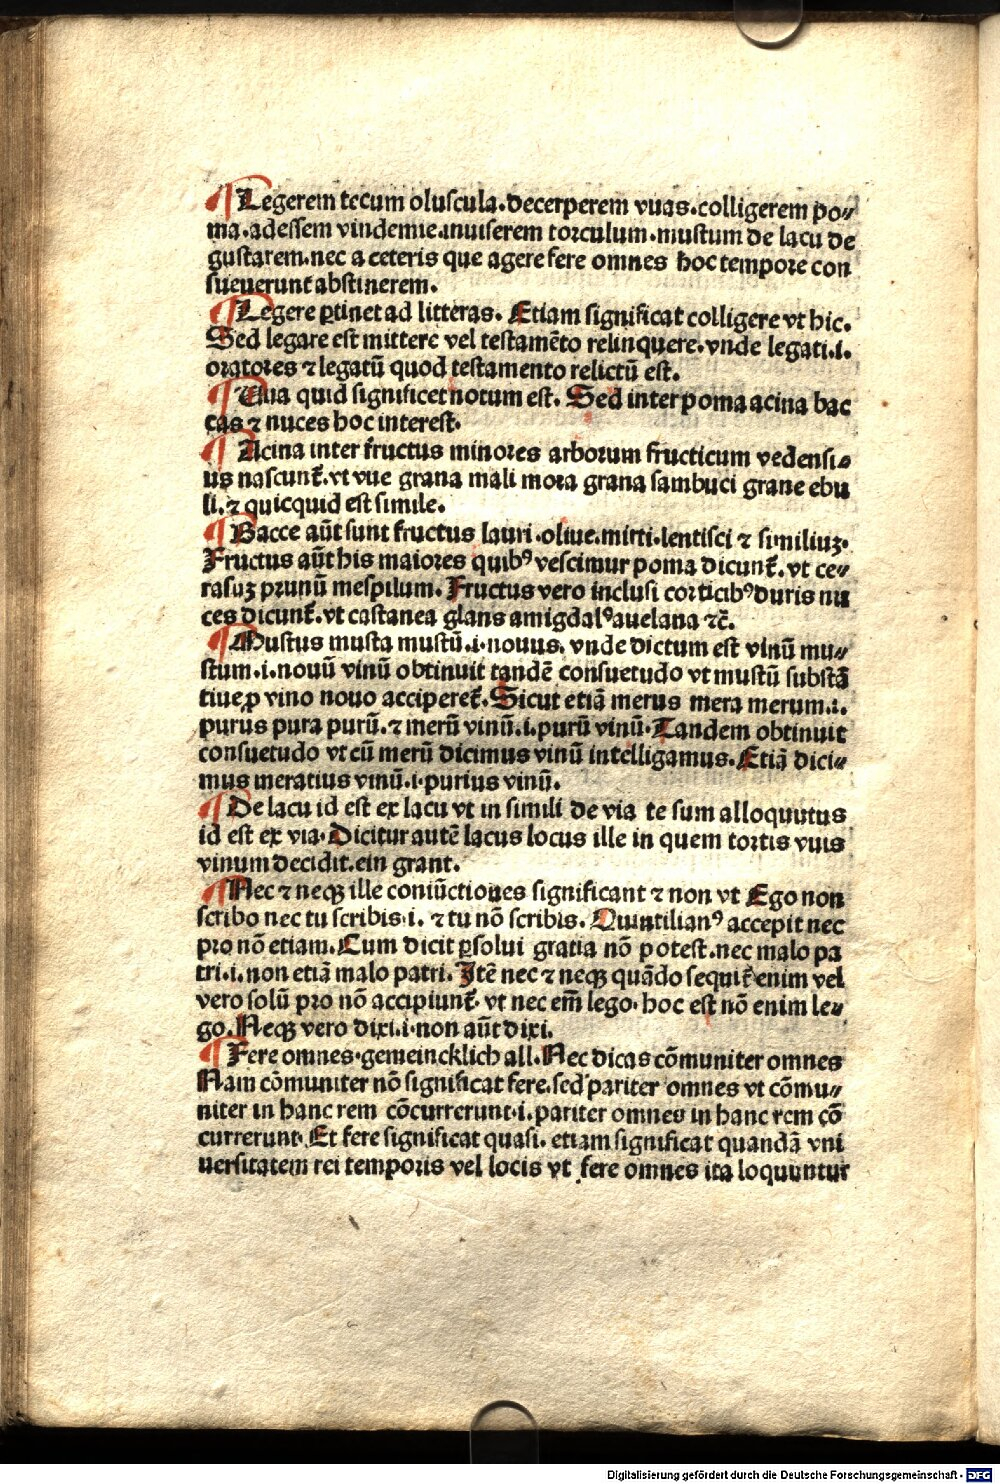 ¶ Legerem tecum oluscula.decerperem vuas.colligerem po⸗
ma.adessem vindemie.inuiserem torculum.mustum de lacu de
gustarem.nec a ceteris que agere fere omnes hoc tempore con
sueuerunt abstinerem.
¶ Legere ꝑtinet ad litteras. Etiam significat colligere vt hic.
Sed legare est mittere vel testamēto relinquere.vnde legati.i.
oratores ⁊ legatū quod testamento relictū est.
¶ Uua quid significet notum est. Sed inter poma acina bac
cas ⁊ nuces hoc interest.
¶ Acina inter fructus minores arborum fructicum vedensi⸗
us nascunt᷑.vt vue grana mali mora grana sambuci grane ebu
li.⁊ quicquid est simile.
¶ Bacce aūt sunt fructus lauri.oliue.mirti.lentisci ⁊ similiuꝫ.
Fructus aūt his maiores quibꝰ vescimur poma dicunt᷑.vt ce⸗
rasuꝫ prunū mespilum. Fructus vero inclusi corticibꝰ duris nu
ces dicunt᷑.vt castanea glans amigdalꝰ auelana ⁊c̄.
¶ Mustus musta mustū.i.nouus. vnde dictum est vinū mu⸗
stum.i.nouū vinū obtinuit tandē consuetudo vt mustū substā
tiue ꝓ vino nouo acciperet᷑. Sicut etiā merus mera merum.i.
purus pura purū.⁊ merū vinū.i.purū vinū. Tandem obtinuit
consuetudo vt cū merū dicimus vinū intelligamus. Etiā dici⸗
mus meratius vinū.i.purius vinū.
¶ De lacu id est ex lacu vt in simili de via te sum alloquutus
id est ex via. Dicitur autē lacus locus ille in quem tortis vuis
vinum decidit.ein grant.
¶ Nec ⁊ neqꝫ ille coniūctiones significant ⁊ non vt Ego non
scribo nec tu scribis.i. ⁊ tu nō scribis. Quintilianꝰ accepit nec
pro nō etiam. Cum dicit ꝑsolui gratia nō potest.nec malo pa
tri.i.non etiā malo patri. Itē nec ⁊ neqꝫ quādo sequit᷑ enim vel
vero solū pro nō accipiunt᷑. vt nec em̄ lego.hoc est nō enim le⸗
go. Neqꝫ vero dixi.i.non aūt dixi.
¶ Fere omnes.gemeincklich all. Nec dicas cōmuniter omnes
Nam cōmuniter nō significat fere.sed pariter omnes vt cōmu⸗
niter in hanc rem cōcurrerunt.i.pariter omnes in hanc rem cō
currerunt. Et fere significat quasi. etiam significat quandā vni
uersitatem rei temporis vel locis vt fere omnes ita loquuntur
Digitalisierung gefördert durch die Deutsche Forschungsgemeinschaft - DFG